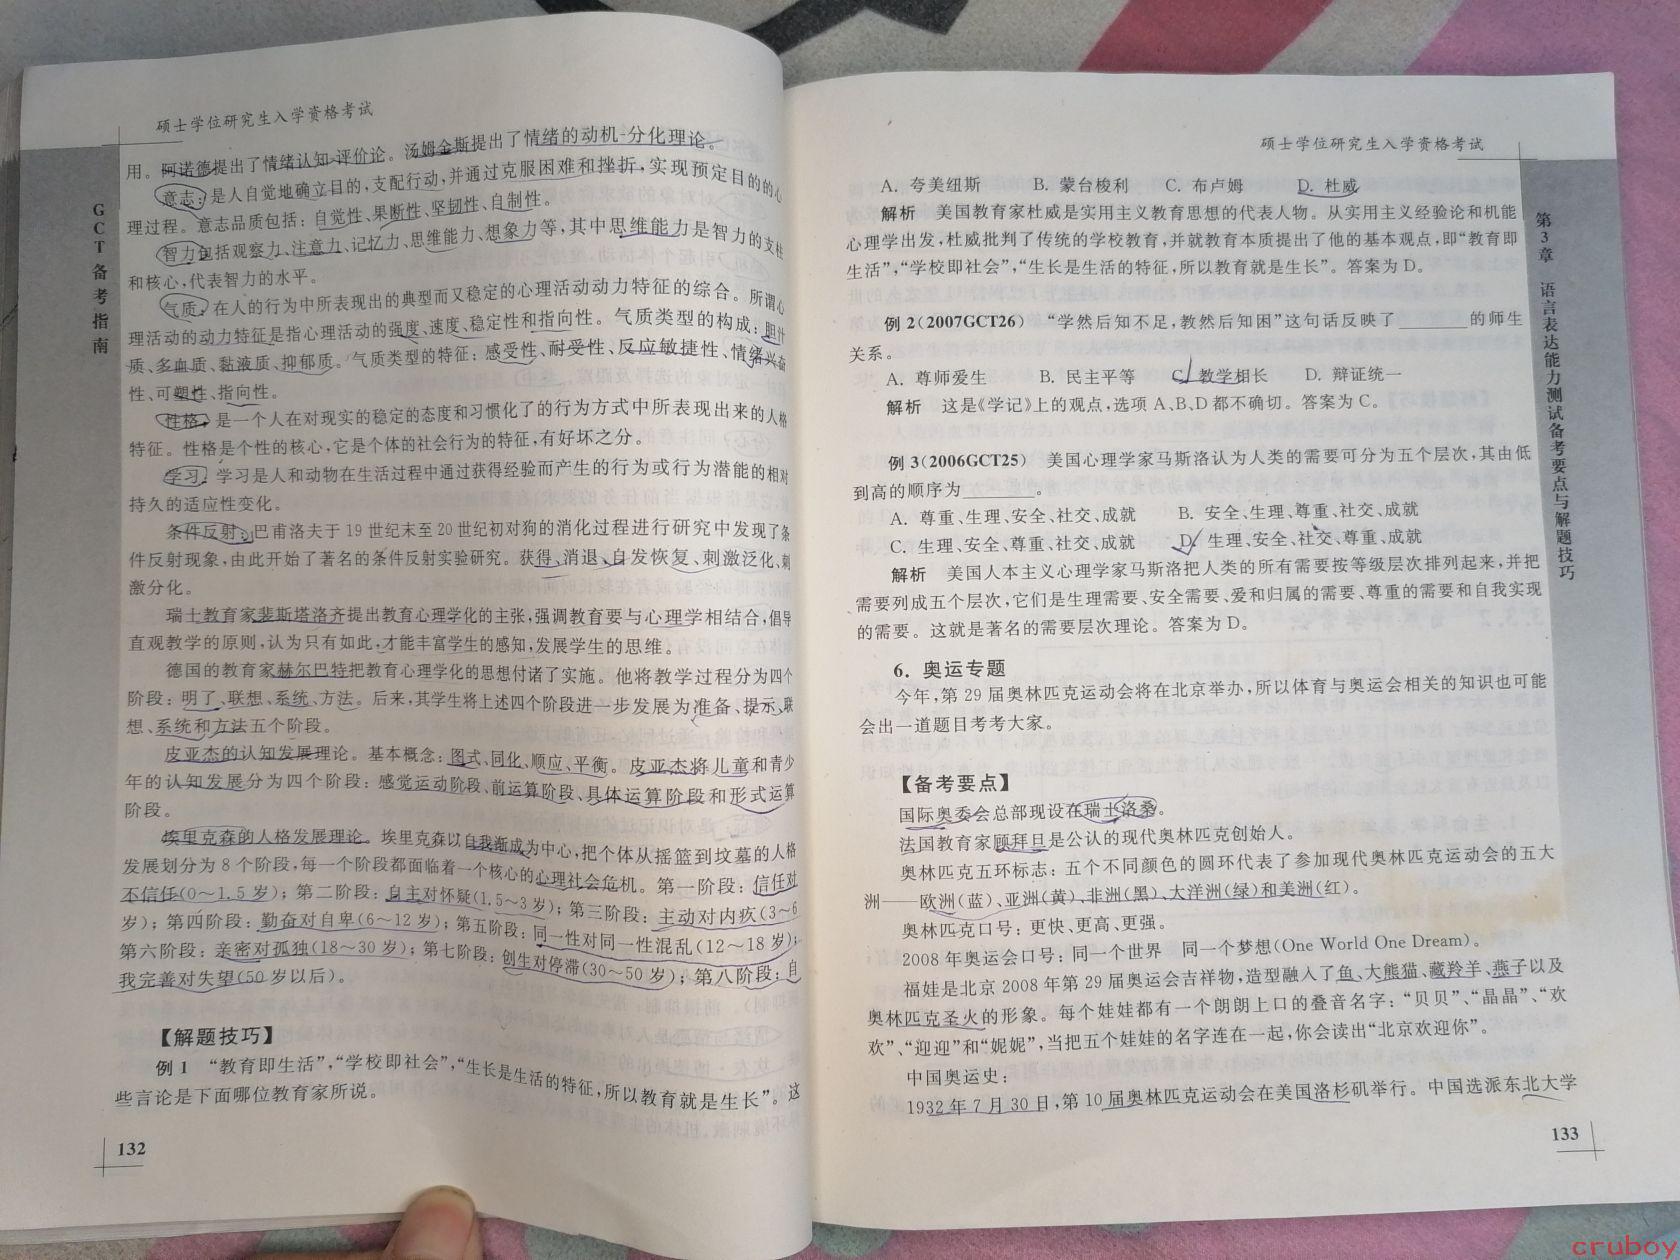 硕士学位研究生入学资格考试
GCT备考指南
用。阿诺德提出了情绪认知-评价论。汤姆金斯提出了情绪的动机-分化理论。
意志：是人自觉地确立目的，支配行动，并通过克服困难和挫折，实现预定目的的心
理过程。意志品质包括：自觉性、果断性、坚韧性、自制性。
智力包括观察力、注意力、记忆力、思维能力、想象力等，其中思维能力是智力的支柱
和核心，代表智力的水平。
气质：在人的行为中所表现出的典型而又稳定的心理活动动力特征的综合。所谓心
理活动的动力特征是指心理活动的强度、速度、稳定性和指向性。气质类型的构成：胆汁
质、多血质、黏液质、抑郁质。气质类型的特征：感受性、耐受性、反应敏捷性、情绪兴奋
性、可塑性、指向性。
性格：是一个人在对现实的稳定的态度和习惯化了的行为方式中所表现出来的人格
特征。性格是个性的核心，它是个体的社会行为的特征，有好坏之分。
学习：学习是人和动物在生活过程中通过获得经验而产生的行为或行为潜能的相对
持久的适应性变化。
条件反射：巴甫洛夫于19世纪末至20世纪初对狗的消化过程进行研究中发现了条
件反射现象，由此开始了著名的条件反射实验研究。获得、消退、自发恢复、刺激泛化、刺
激分化。
瑞士教育家裴斯塔洛齐提出教育心理学化的主张，强调教育要与心理学相结合，倡导
直观教学的原则，认为只有如此，才能丰富学生的感知，发展学生的思维。
德国的教育家赫尔巴特把教育心理学化的思想付诸了实施。他将教学过程分为四个
阶段：明了、联想、系统、方法。后来，其学生将上述四个阶段进一步发展为准备、提示、联
想、系统和方法五个阶段。
皮亚杰的认知发展理论。基本概念：图式、同化、顺应、平衡。皮亚杰将儿童和青少
年的认知发展分为四个阶段：感觉运动阶段、前运算阶段、具体运算阶段和形式运算
阶段。
埃里克森的人格发展理论。埃里克森以自我渐成为中心，把个体从摇篮到坟墓的人格
发展划分为8个阶段，每一个阶段都面临着一个核心的心理社会危机。第一阶段：信任对
不信任(0～1.5岁)；第二阶段：自主对怀疑(1.5～3岁)；第三阶段：主动对内疚(3～6
岁)；第四阶段：勤奋对自卑(6～12岁)；第五阶段：同一性对同一性混乱(12～18岁)；
第六阶段：亲密对孤独(18～30岁)；第七阶段：创生对停滞(30～50岁)；第八阶段：自
我完善对失望(50岁以后)。
【解题技巧】
例1 “教育即生活”，“学校即社会”，“生长是生活的特征，所以教育就是生长”。这
些言论是下面哪位教育家所说。
132
硕士学位研究生入学资格考试
第3章 语言表达能力测试备考要点与解题技巧
A. 夸美纽斯 B. 蒙台梭利 C. 布卢姆 D. 杜威
解析 美国教育家杜威是实用主义教育思想的代表人物。从实用主义经验论和机能
心理学出发，杜威批判了传统的学校教育，并就教育本质提出了他的基本观点，即“教育即
生活”，“学校即社会”，“生长是生活的特征，所以教育就是生长”。答案为D。
例2(2007GCT26) “学然后知不足，教然后知困”这句话反映了______的师生
关系。
A. 尊师爱生 B. 民主平等 C. 教学相长 D. 辩证统一
解析 这是《学记》上的观点，选项A、B、D都不确切。答案为C。
例3(2006GCT25) 美国心理学家马斯洛认为人类的需要可分为五个层次，其由低
到高的顺序为______。
A. 尊重、生理、安全、社交、成就 B. 安全、生理、尊重、社交、成就
C. 生理、安全、尊重、社交、成就 D. 生理、安全、社交、尊重、成就
解析 美国人本主义心理学家马斯洛把人类的所有需要按等级层次排列起来，并把
需要列成五个层次，它们是生理需要、安全需要、爱和归属的需要、尊重的需要和自我实现
的需要。这就是著名的需要层次理论。答案为D。
6. 奥运专题
今年，第29届奥林匹克运动会将在北京举办，所以体育与奥运会相关的知识也可能
会出一道题目考考大家。
【备考要点】
国际奥委会总部现设在瑞士洛桑。
法国教育家顾拜旦是公认的现代奥林匹克创始人。
奥林匹克五环标志：五个不同颜色的圆环代表了参加现代奥林匹克运动会的五大
洲——欧洲(蓝)、亚洲(黄)、非洲(黑)、大洋洲(绿)和美洲(红)。
奥林匹克口号：更快、更高、更强。
2008年奥运会口号：同一个世界 同一个梦想(One World One Dream)。
福娃是北京2008年第29届奥运会吉祥物，造型融入了鱼、大熊猫、藏羚羊、燕子以及
奥林匹克圣火的形象。每个娃娃都有一个朗朗上口的叠音名字：“贝贝”、“晶晶”、“欢
欢”、“迎迎”和“妮妮”，当把五个娃娃的名字连在一起，你会读出“北京欢迎你”。
中国奥运史：
1932年7月30日，第10届奥林匹克运动会在美国洛杉矶举行。中国选派东北大学
133
cruboy